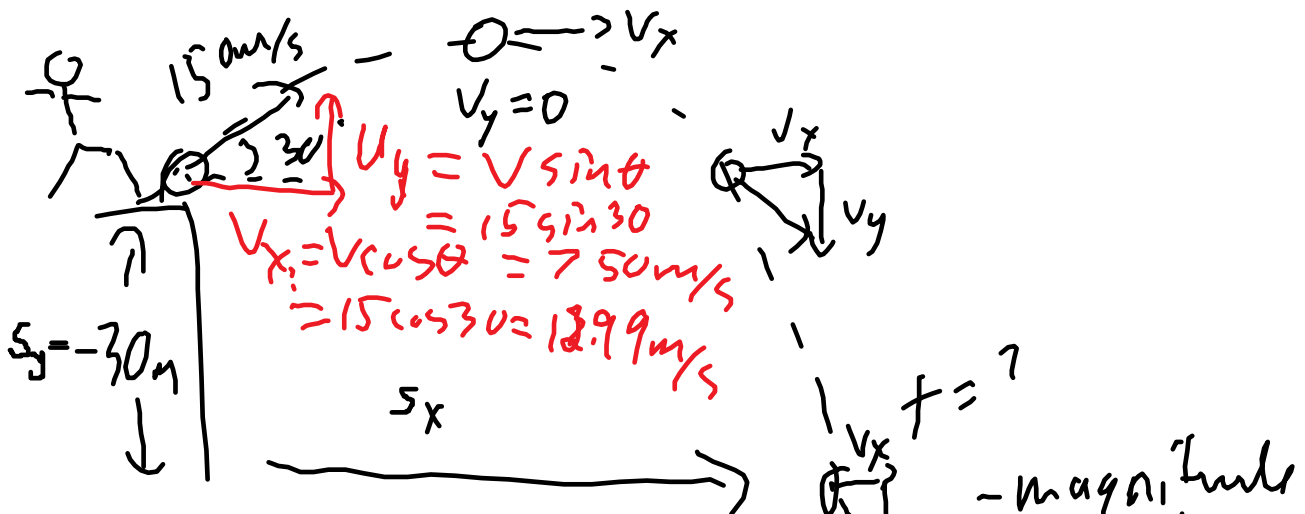 15 m/s
30
→ Vx
Vy = 0
Uy = V sinθ
= 15 sin 30
= 7.50 m/s
Vx = V cosθ
= 15 cos 30 = 12.99 m/s
Vx
Vy
Sy = -30m
Sx
t = ?
Vx
- magnitude